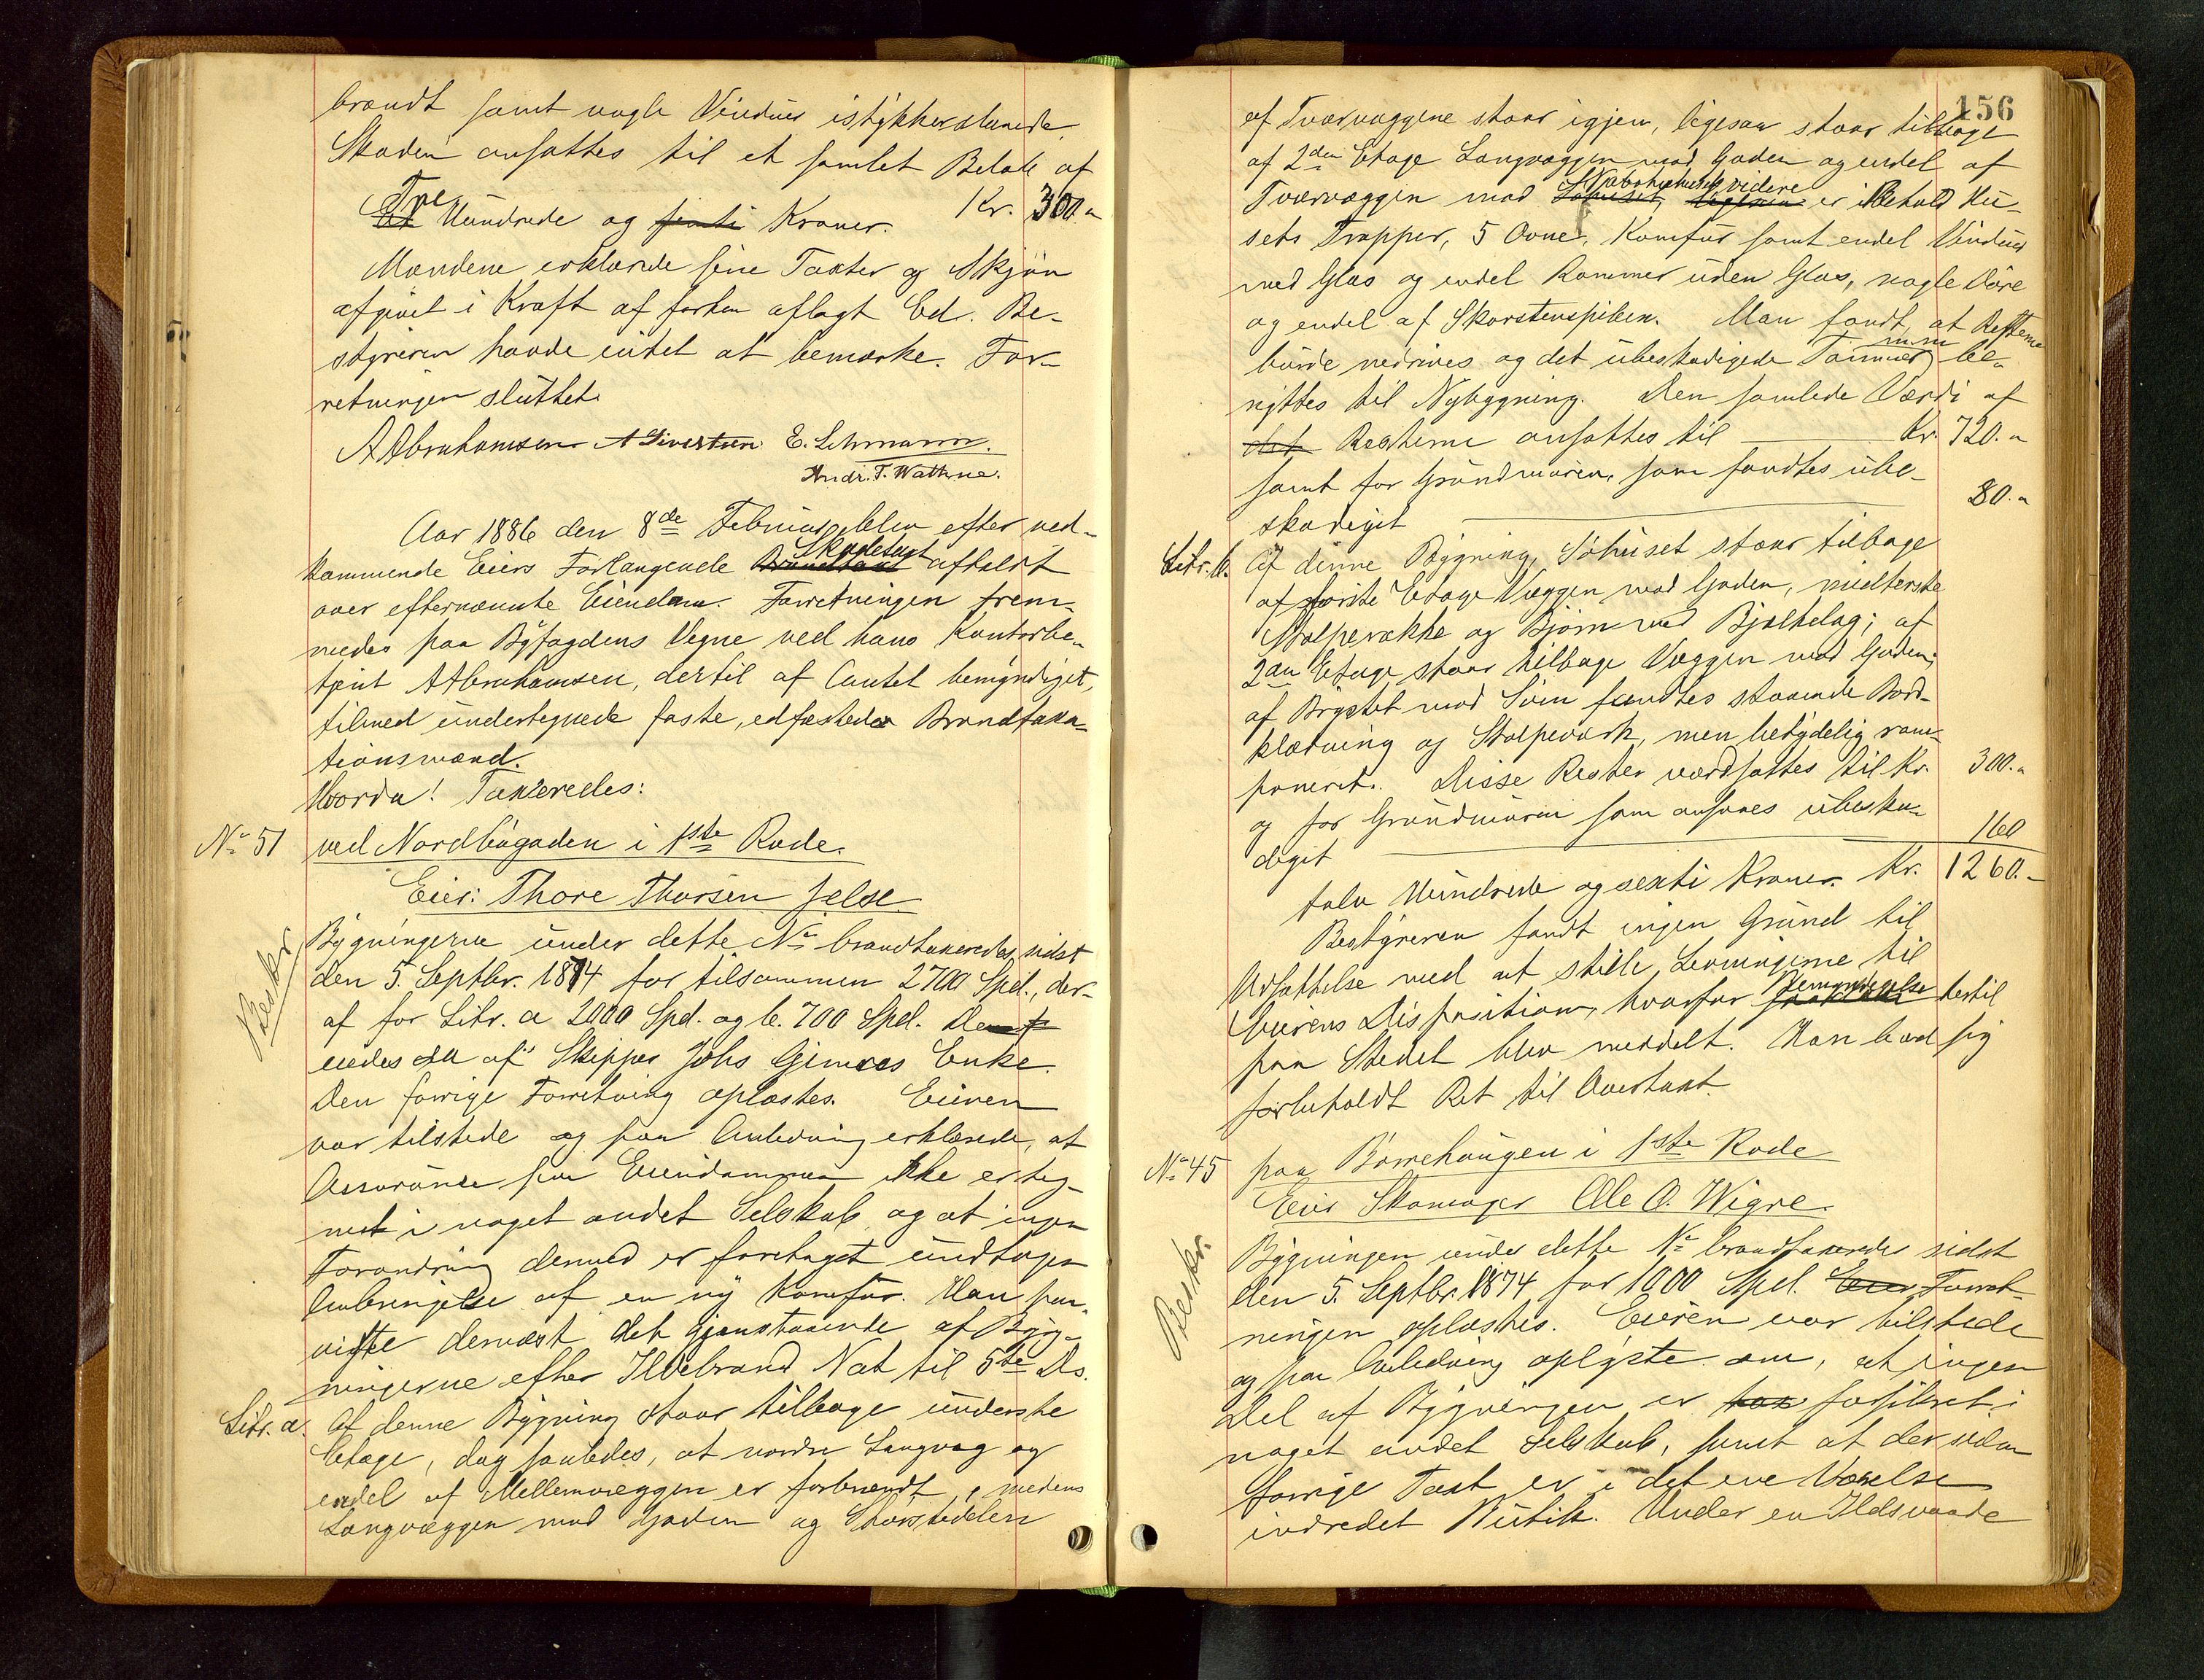 brændt samt nogle Vinduer istykkerslanede.
Skaden ansattes til et samlet Beløb af
Tre
Et Hundrede og femti Kroner. Kr. 300.-
Mændene erklærede sine Taxter og Skjøn
afgivet i Kraft af forhen aflagt Ed. Be-
styreren havde intet at bemærke. For-
retningen sluttet.
A Abrahamsen A Sivertsen E. Lehmann.
Andr. T. Wathne.
Aar 1886 den 8de Februar blev efter ved-
kommende Eiers Forlangende Skadetaxt
Brandtaxt afholdt
over efternævnte Eiendom. Forretningen frem-
medes paa Byfogdens Vegne ved hans Kontorbe-
tjent A Abrahamsen, dertil af Amtet bemyndiget,
tilmed undertegnede faste, edfæstede Brandtaxa-
tionsmænd.
Hvorda! Taxeredes:
No 51 ved Nordbøgaden i 1ste Rode.
Eier: Thore Thorsen Jelse
Besker
Bygningerne under dette No brandtaxeredes sidst
den 5. Septbr. 1874 for tilsammen 2700 Spd., der-
af for Litr. a 2000 Spd. og b. 700 Spd. De
eiedes da af Skipper Johs Gjemres Enke.
Den forrige Forretning oplæstes. Eieren
var tilstede og paa Anledning erklærede, at
Assurance paa Eiendommen ikke er teg-
net i noget andet Selskab og at ingen
Forandring dermed er foretaget undtagen
Anbringelse af en ny Komfur. Han paa-
viste dernæst det gjenstaaende af Byg-
ningerne efter Ildebrand Nat til 5te Ds.
Litr. a. Af denne Bygning staar tilbage underste
Etage, dog saaledes, at nordre Langvæg og
endel af Mellemvæggen er forbrændt, medens
Langvæggen mod Gaden og Størstedelen
156
af Tværvæggene staar igjen, ligesaa staar tilbage
af 2den Etage Langvæggen mod Gaden og endel af
Nabohuset videre
Tværvæggen mod Søhuset, er i Behold Hu-
sets Trapper, 5 Ovne, Komfur samt endel Vinduer
med Glas og endel Rammer uden Glas, nogle Døre
og endel af Skorstenspiben. Man fandt, at Resterne
m.m
burde nedrives og det ubeskadigede Tømmer be-
nyttes til Nybygning. Den samlede Værdi af
det Resterne ansattes til Kr. 720.-
samt for Grundmuren, som fandtes ube-
skadiget 80.-
Litr. b. Af denne Bygning, Søhuset staar tilbage
af første Etage Væggen mod Gaden, midterste
Stolperække og Bjørn med Bjelkelag; af
2den Etage staar tilbage Væggen mod Gaden;
af Brystet mod Søen fandtes staaende Bord-
klædning og Stolpeværk, men betydelig ram-
poneret. Disse Rester værdsattes til Kr. 300.-
og for Grundmuren som ansaaes ubeska-
diget 160
tolv Hundrede og sexti Kroner. Kr. 1260.-
Bestyreren fandt ingen Grund til
Udsættelse med at stille Levningerne til
Eierens Disposition, hvorfor Bemyndigelse hertil
paa Stedet blev meddelt. Han bad sig
forbeholdt Ret til Overtaxt.
No 45 paa Børrehaugen i 1ste Rode
Eier Skomager Ole O. Wigre.
Besker.
Bygningen under dette No brandtaxeredes sidst
den 5. Septbr. 1874 for 1000 Spd. Eier Forret-
ningen oplæstes. Eieren var tilstede
og paa Anledning oplyste om, at ingen
Del af Bygningen er tax forsikret i
noget andet Selskab, samt at der siden
forrige Taxt er i det ene Værelse
indredet Butik. Under en Ildsvaade